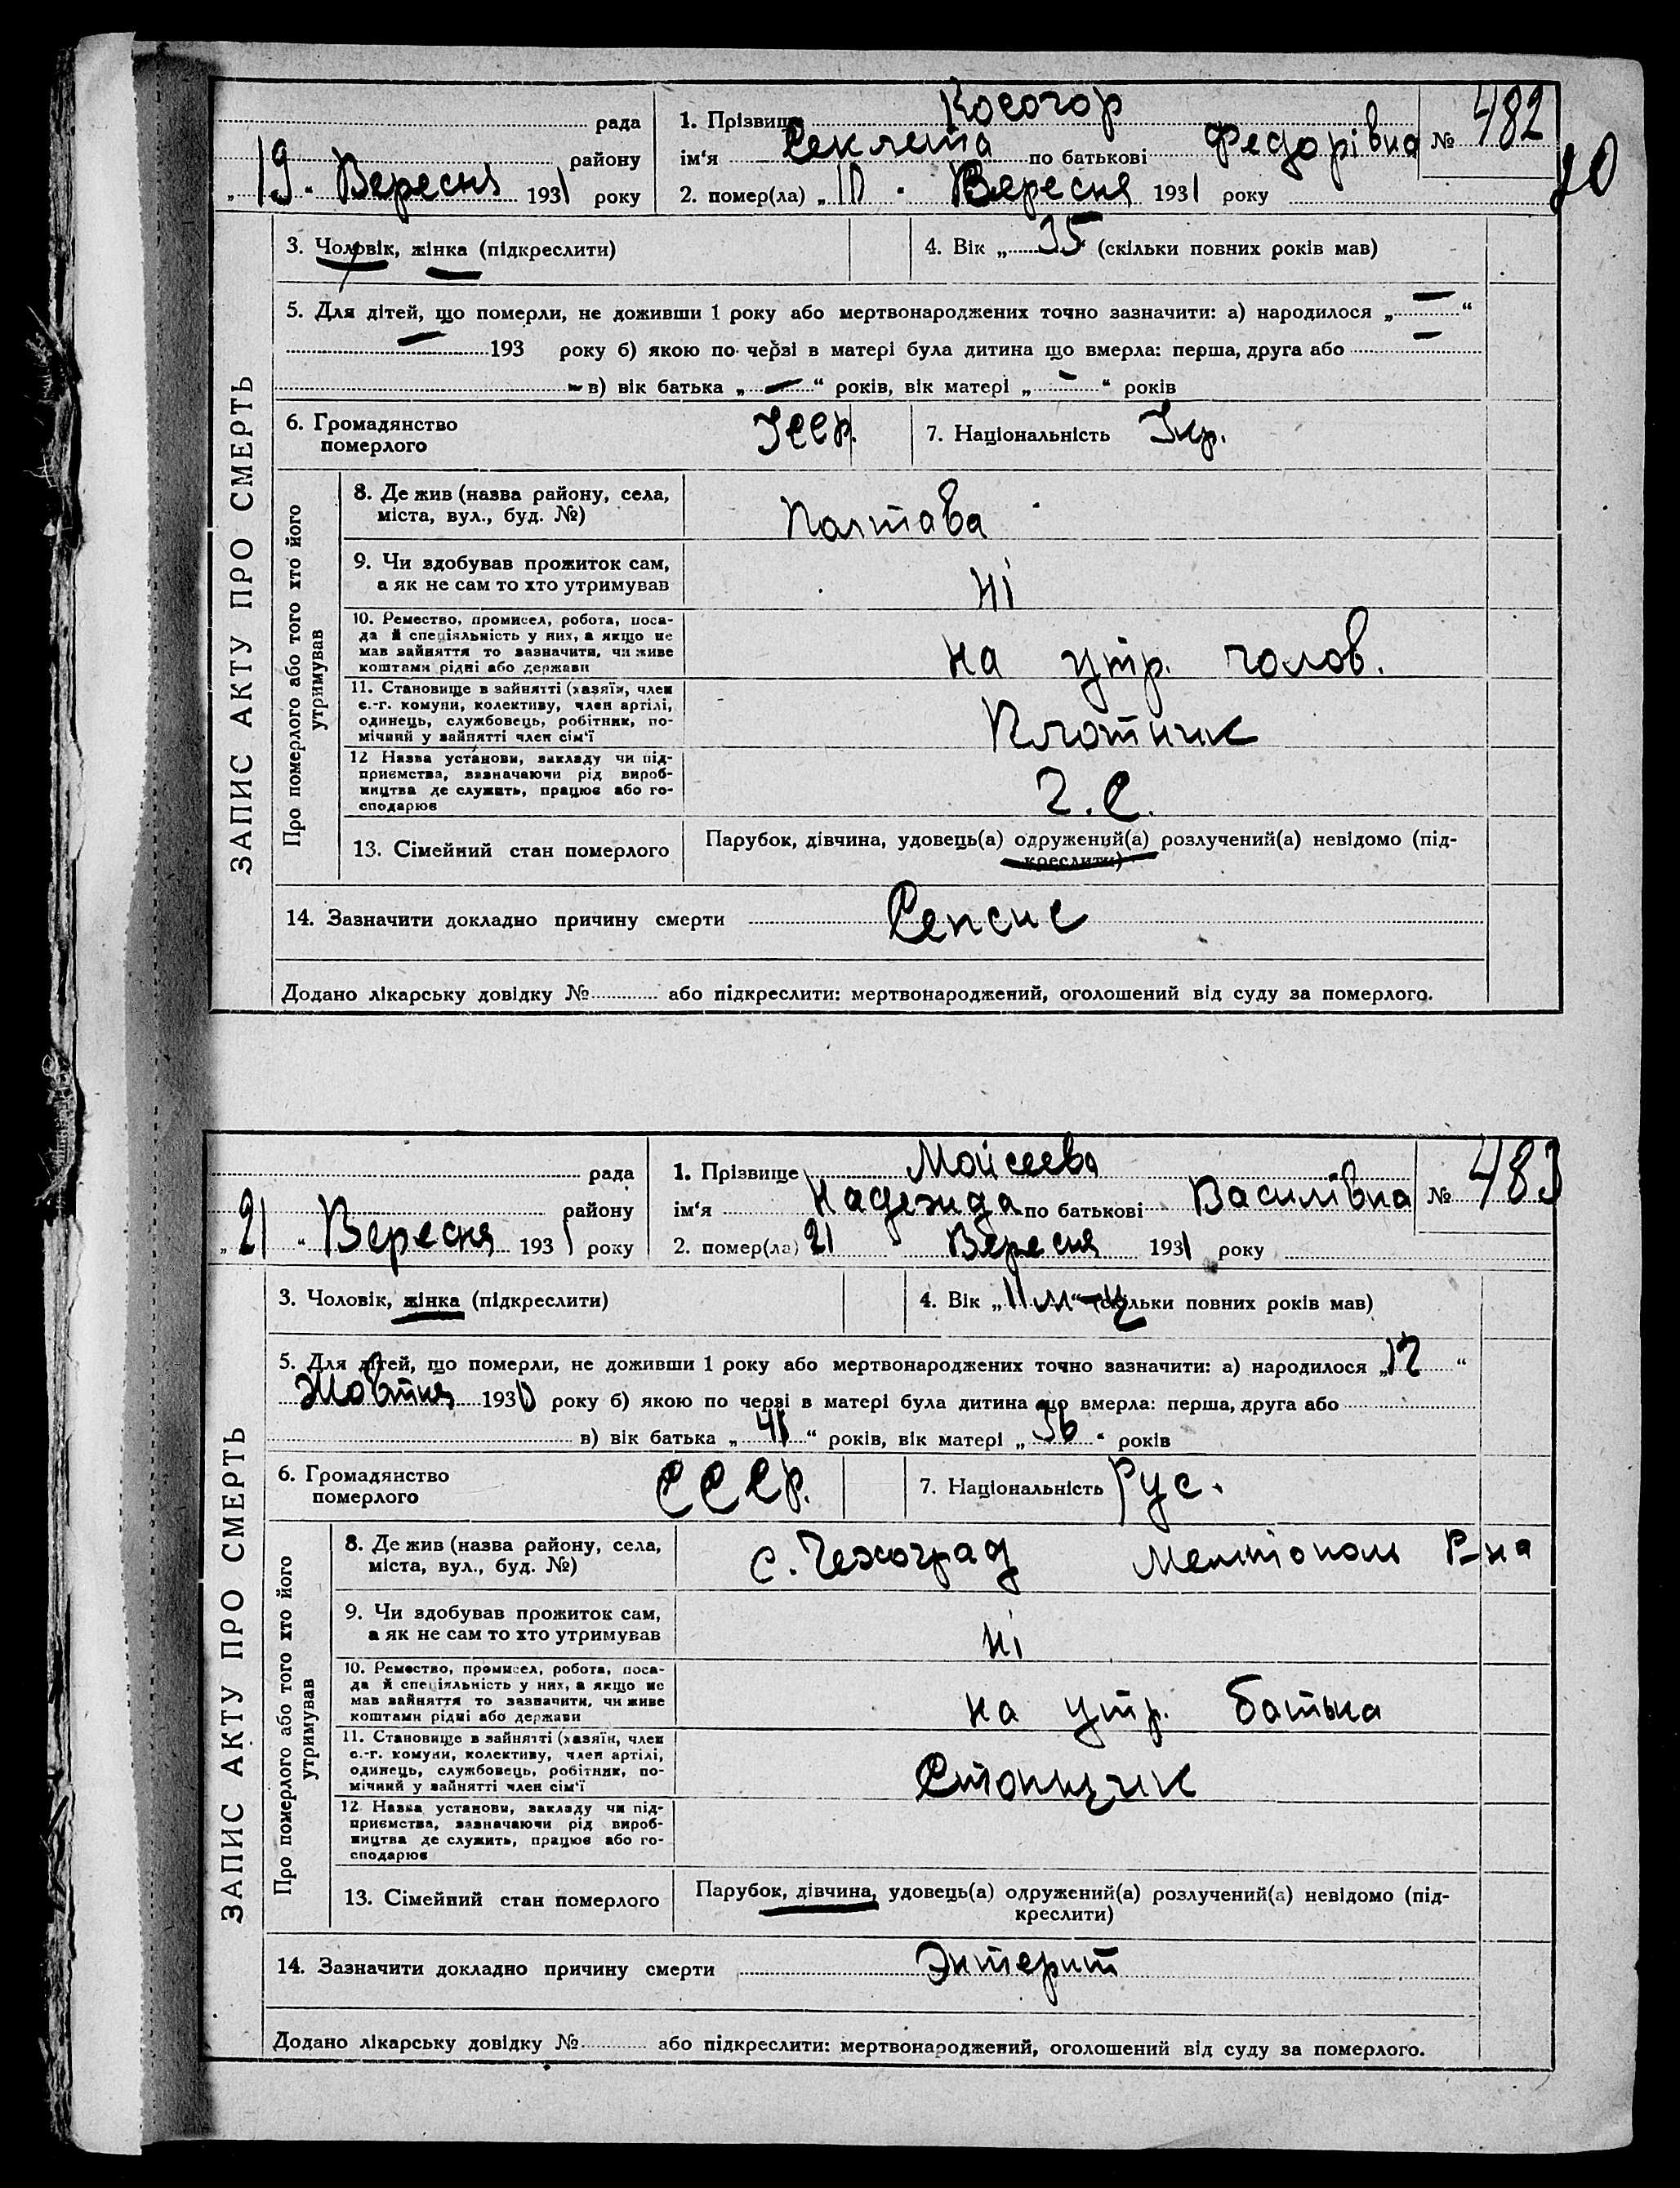 рада
району
„ 19 " Вересня 1931 року
1. Прізвище Косогор
ім'я Секлета по батькові Федорівна
2. помер(ла) „ 10 " Вересня 1931 року
№ 482
20
ЗАПИС АКТУ ПРО СМЕРТЬ
3. Чоловік, жінка (підкреслити)
4. Вік „ 35 " (скільки повних років мав)
5. Для дітей, що померли, не доживши 1 року або мертвонароджених точно зазначити: а) народилося „ — "
— 193 року б) якою по черзі в матері була дитина що вмерла: перша, друга або —
— в) вік батька „ — " років, вік матері „ — " років
6. Громадянство
померлого
УССР.
7. Національність Укр.
Про померлого або того хто його
утримував
8. Де жив (назва району, села,
міста, вул., буд. №)
Полтава
9. Чи здобував прожиток сам,
а як не сам то хто утримував
Ні
10. Ремество, промисел, робота, поса-
да й спеціяльність у них, а якщо не
мав зайняття то зазначити, чи живе
коштами рідні або держави
на утр. чолов.
11. Становище в зайнятті (хазяїн, член
с.-г. комуни, колективу, член артілі,
одинець, службовець, робітник, по-
мічний у зайнятті член сім'ї
Плотник
12 Назва установи, закладу чи під-
приємства, зазначаючи рід вироб-
ництва де служить, працює або го-
сподарює
13. Сімейний стан померлого
Парубок, дівчина, удовець(а) одружений(а) розлучений(а) невідомо (під-
креслити)
14. Зазначити докладно причину смерти Сепсис
Додано лікарську довідку № або підкреслити: мертвонароджений, оголошений від суду за померлого.
рада
району
„ 21 " Вересня 1931 року
1. Прізвище Моісеева
ім'я Надежда по батькові Василівна
2. помер(ла) 21 Вересня 1931 року
№ 483
ЗАПИС АКТУ ПРО СМЕРТЬ
3. Чоловік, жінка (підкреслити)
4. Вік „ 11 м-ц " (скільки повних років мав)
5. Для дітей, що померли, не доживши 1 року або мертвонароджених точно зазначити: а) народилося „ 12 "
Жовтня 1930 року б) якою по черзі в матері була дитина що вмерла: перша, друга або
в) вік батька „ 41 " років, вік матері „ 36 " років
6. Громадянство
померлого
СССР.
7. Національність Рус.
Про померлого або того хто його
утримував
8. Де жив (назва району, села,
міста, вул., буд. №)
с. Чехоград Мелітополь Р-на
9. Чи здобував прожиток сам,
а як не сам то хто утримував
Ні
10. Ремество, промисел, робота, поса-
да й спеціяльність у них, а якщо не
мав зайняття то зазначити, чи живе
коштами рідні або держави
на утр. батька
11. Становище в зайнятті (хазяїн, член
с.-г. комуни, колективу, член артілі,
одинець, службовець, робітник, по-
мічний у зайнятті член сім'ї
12. Назва установи, закладу чи під-
приємства, зазначаючи рід вироб-
ництва де служить, працює або го-
сподарює
13. Сімейний стан померлого
Парубок, дівчина, удовець(а) одружений(а) розлучений(а) невідомо (під-
креслити)
14. Зазначити докладно причину смерти Энтерит
Додано лікарську довідку № або підкреслити: мертвонароджений, оголошений від суду за померлого.